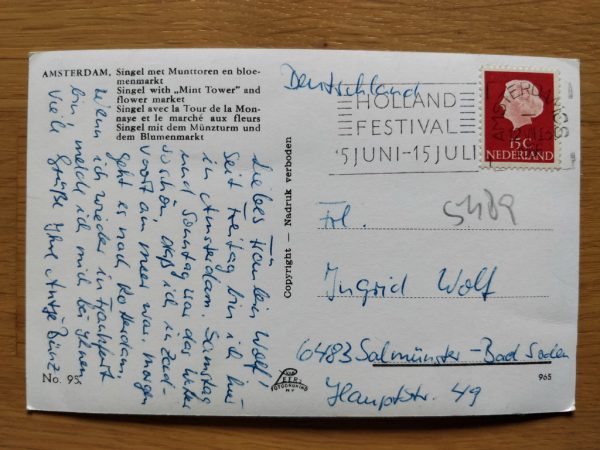 AMSTERDAM, Singel met Munttoren en bloe-
menmarkt
Singel with „Mint Tower" and
flower market
Singel avec la Tour de la Mon-
naye et le marché aux fleurs
Singel mit dem Münzturm und
dem Blumenmarkt
Liebes Fräulein Wolf!
Seit Freitag bin ich hier
in Amsterdam. Samstag
und Sonntag war das Wetter
so schön, daß ich in Zand-
voort am Meer war. Morgen
geht es nach Rotterdam.
Wenn ich wieder in Frankfurt
bin, melde ich mich bei Ihnen
Viele Grüße Ihre Antje
No. 95
Copyright — Nadruk verboden
Deutschland
HOLLAND
FESTIVAL
5 JUNI-15 JULI
AMSTERDAM
15 C
NEDERLAND
Frl.
5489
Ingrid Wolf
6483 Salmünster-Bad Soden
Hauptstr. 49
965